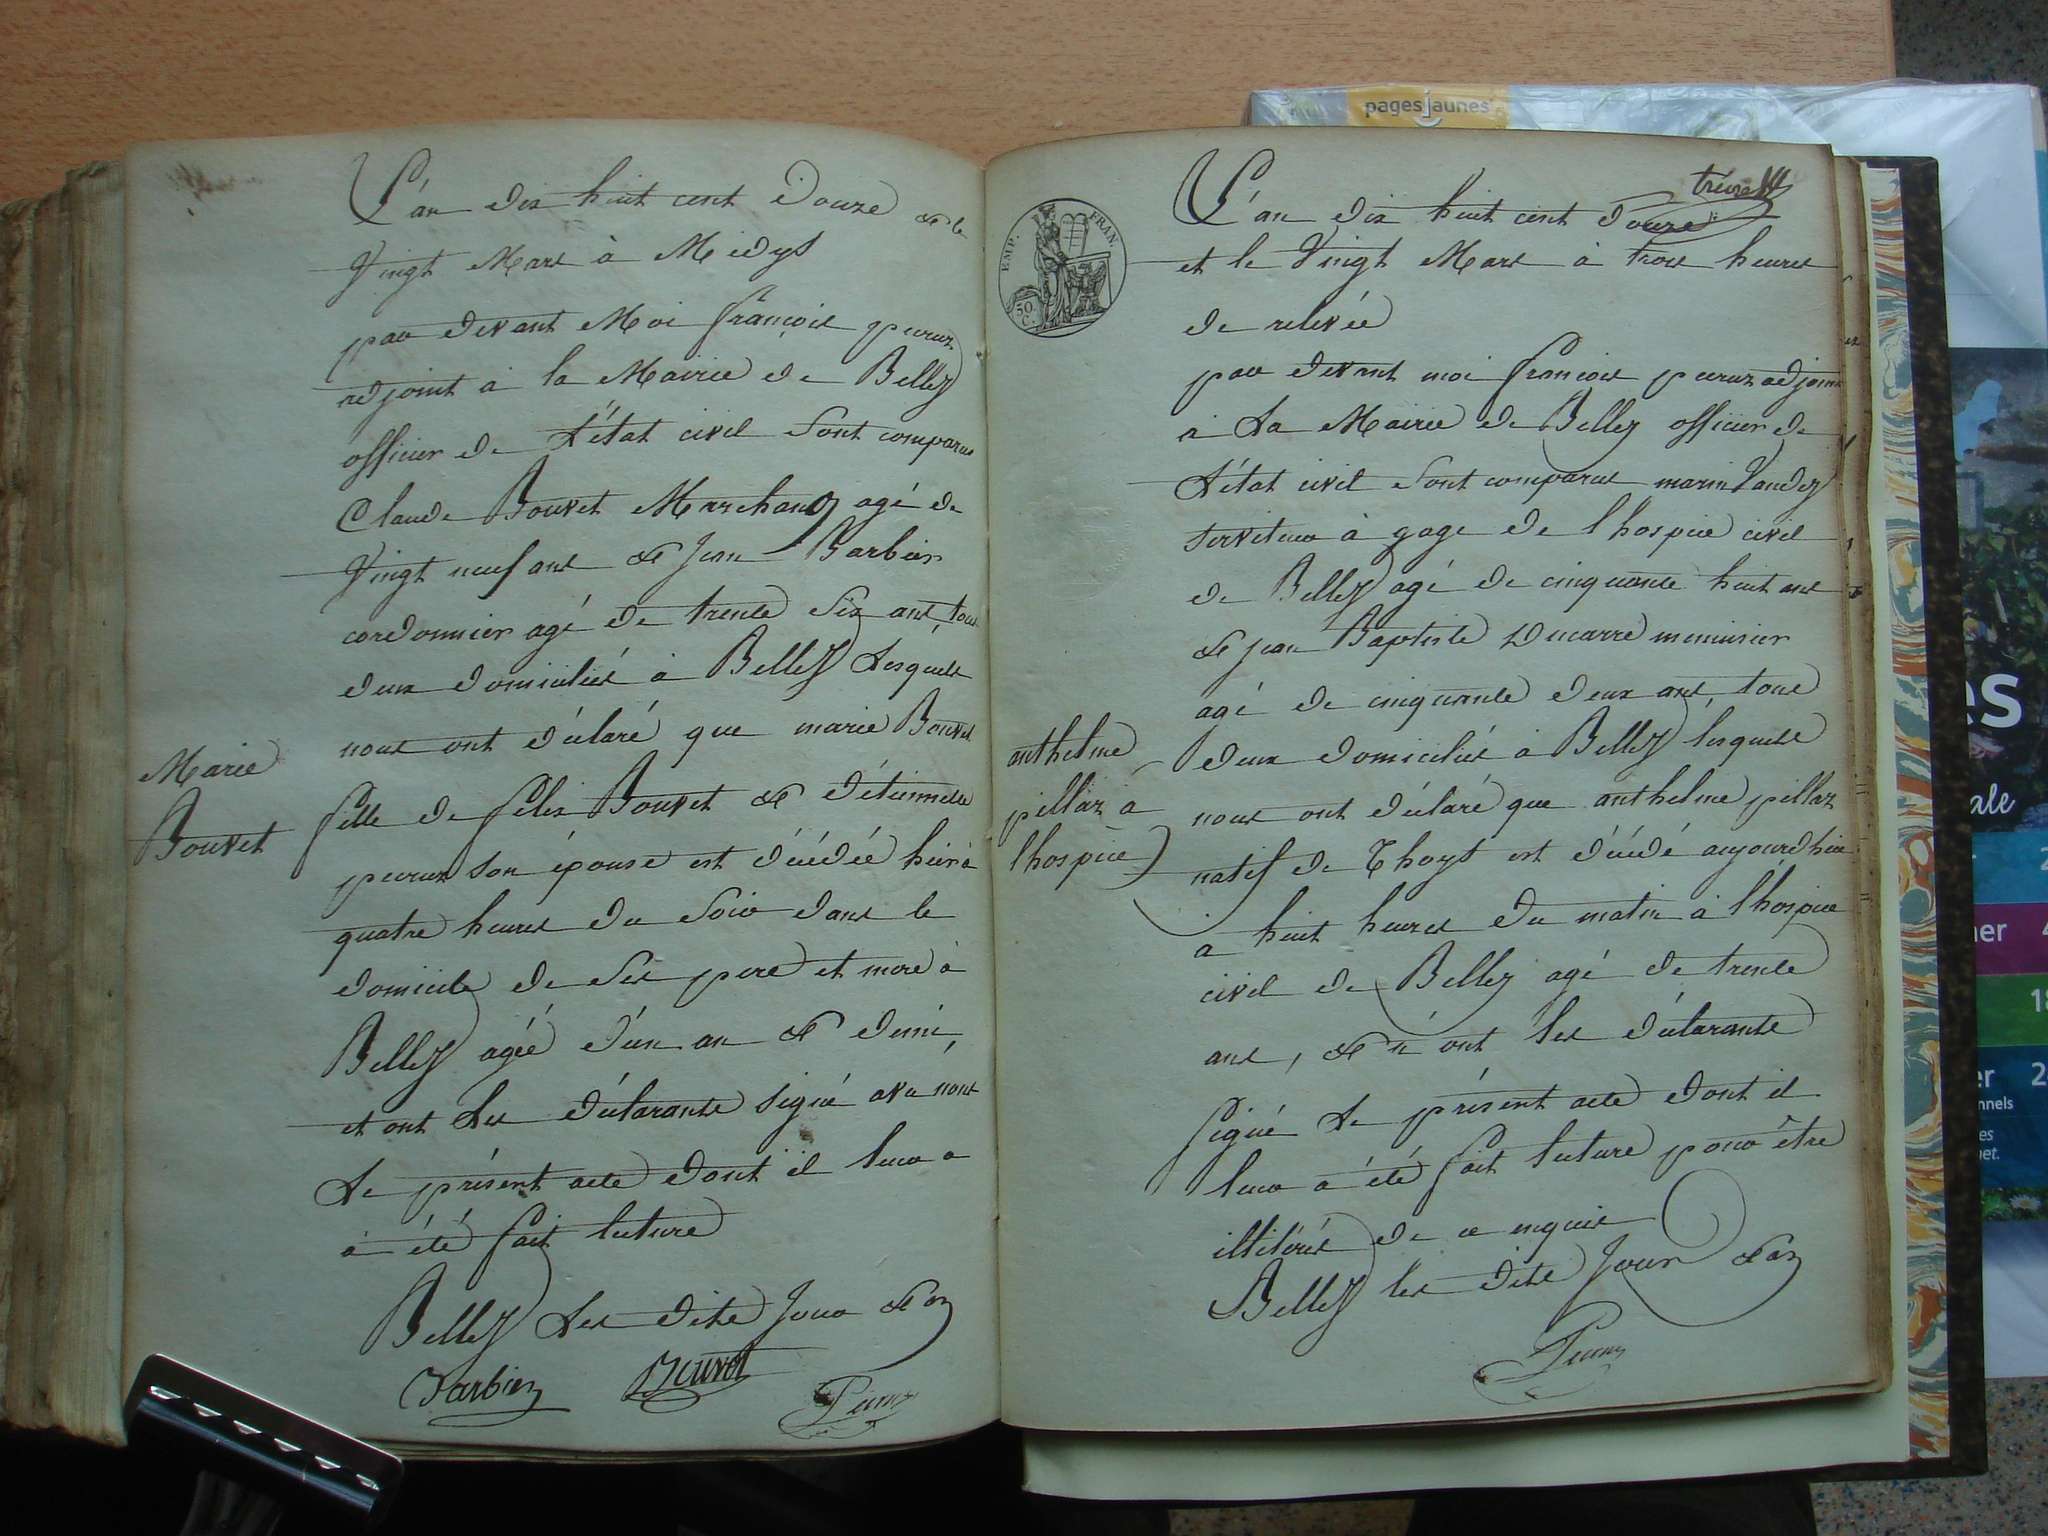 L'an dix huit cent Douze & le
Vingt Mars à Midys
par devant Moi françois peruz
adjoint à la Mairie de Belley
officier de L'état civil Sont comparus
Claude Bouvet Marchand agé de
Vingt neuf ans & Jean Barbier
cordonnier agé de trente Six ans, tous
deux domiciliés à Belley Lesquels
nous ont déclaré que marie Bouvet
Marie
Bouvet
fille de felix Bouvet & d'étiennette
peruz son épouse est décédée hier à
quatre heures du Soir dans le
domicile de Ses pere et mere à
Belley agée d'un an & demi,
et ont Les déclarants signé avec nous
Le présent acte dont il leur a
a été fait lecture
Belley Les dits Jour & an
Barbier Bouvet Peruz
EMP. FRAN.
50
C.
trévoux
L'an dix huit cent Douze
et le Vingt Mars à trois heures
de relevée
par devant moi françois peruz adjoint
à La Mairie de Belley officier de
L'état civil Sont comparus marin
serviteur à gage de l'hospice civil
de Belley agé de cinquante huit ans
& jean Baptiste Ducarre menuisier
agé de cinquante deux ans, tous
deux domiciliés à Belley lesquels
anthelme
pillaz à
l'hospice
nous ont déclaré que anthelme pillaz
natif de Thoys est décédé aujourdhui
à huit heures du matin à l'hospice
civil de Belley agé de trente
ans, & n'ont les déclarants
signé Le présent acte dont il
leur a été fait lecture pour être
illitérés de ce enquis
Belley les dits Jour & an
Peruz
pagesjaunes
es
ale
2
ner 4
18
er 2
nnels
es
net.